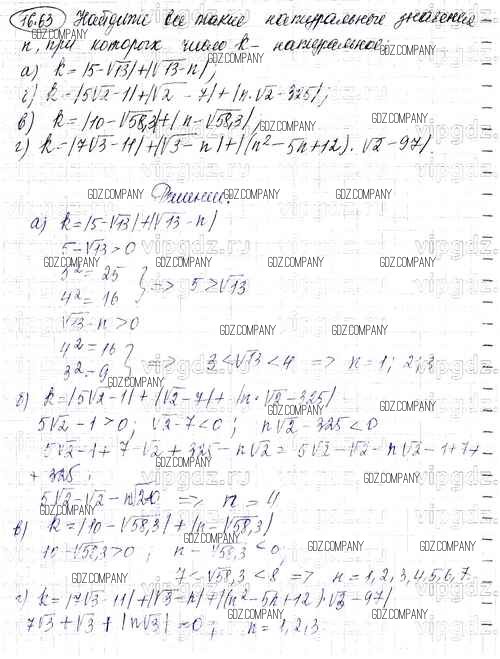 16.63 Найдите все такие натуральные значения
n, при которых число k - натуральное:
а) k = |5-√13|+|√13-n|;
г) k = |5√2-1|+|√2-7|+|n·√2-325|;
в) k = |10-√58,3|+|n-√58,3|
г) k = |7√3-11|+|√3-n|+|(n²-5n+12)·√2-97|.
Решение:
а) k = |5-√13|+|√13-n|
5-√13>0
5²=25
4²=16 } => 5>√13
√13-n>0
4²=16
3²=9 } => 3<√13<4 => n=1; 2; 3
б) k = |5√2-1|+|√2-7|+|n·√2-325|
5√2-1>0; √2-7<0; n√2-325<0
5√2-1+7-√2+325-n√2 = 5√2-√2-n√2-1+7+
+325;
5√2-√2-n√2=0 => n=4
в) k = |10-√58,3|+|n-√58,3|
10-√58,3>0; n-√58,3<0;
7<√58,3<8 => n=1,2,3,4,5,6,7
г) k = |7√3-11|+|√3-n|+|(n²-5n+12)·√3-97|
7√3+√3+|n√3|=0; n=1,2,3
GDZ.COMPANY
vipgdz.ru